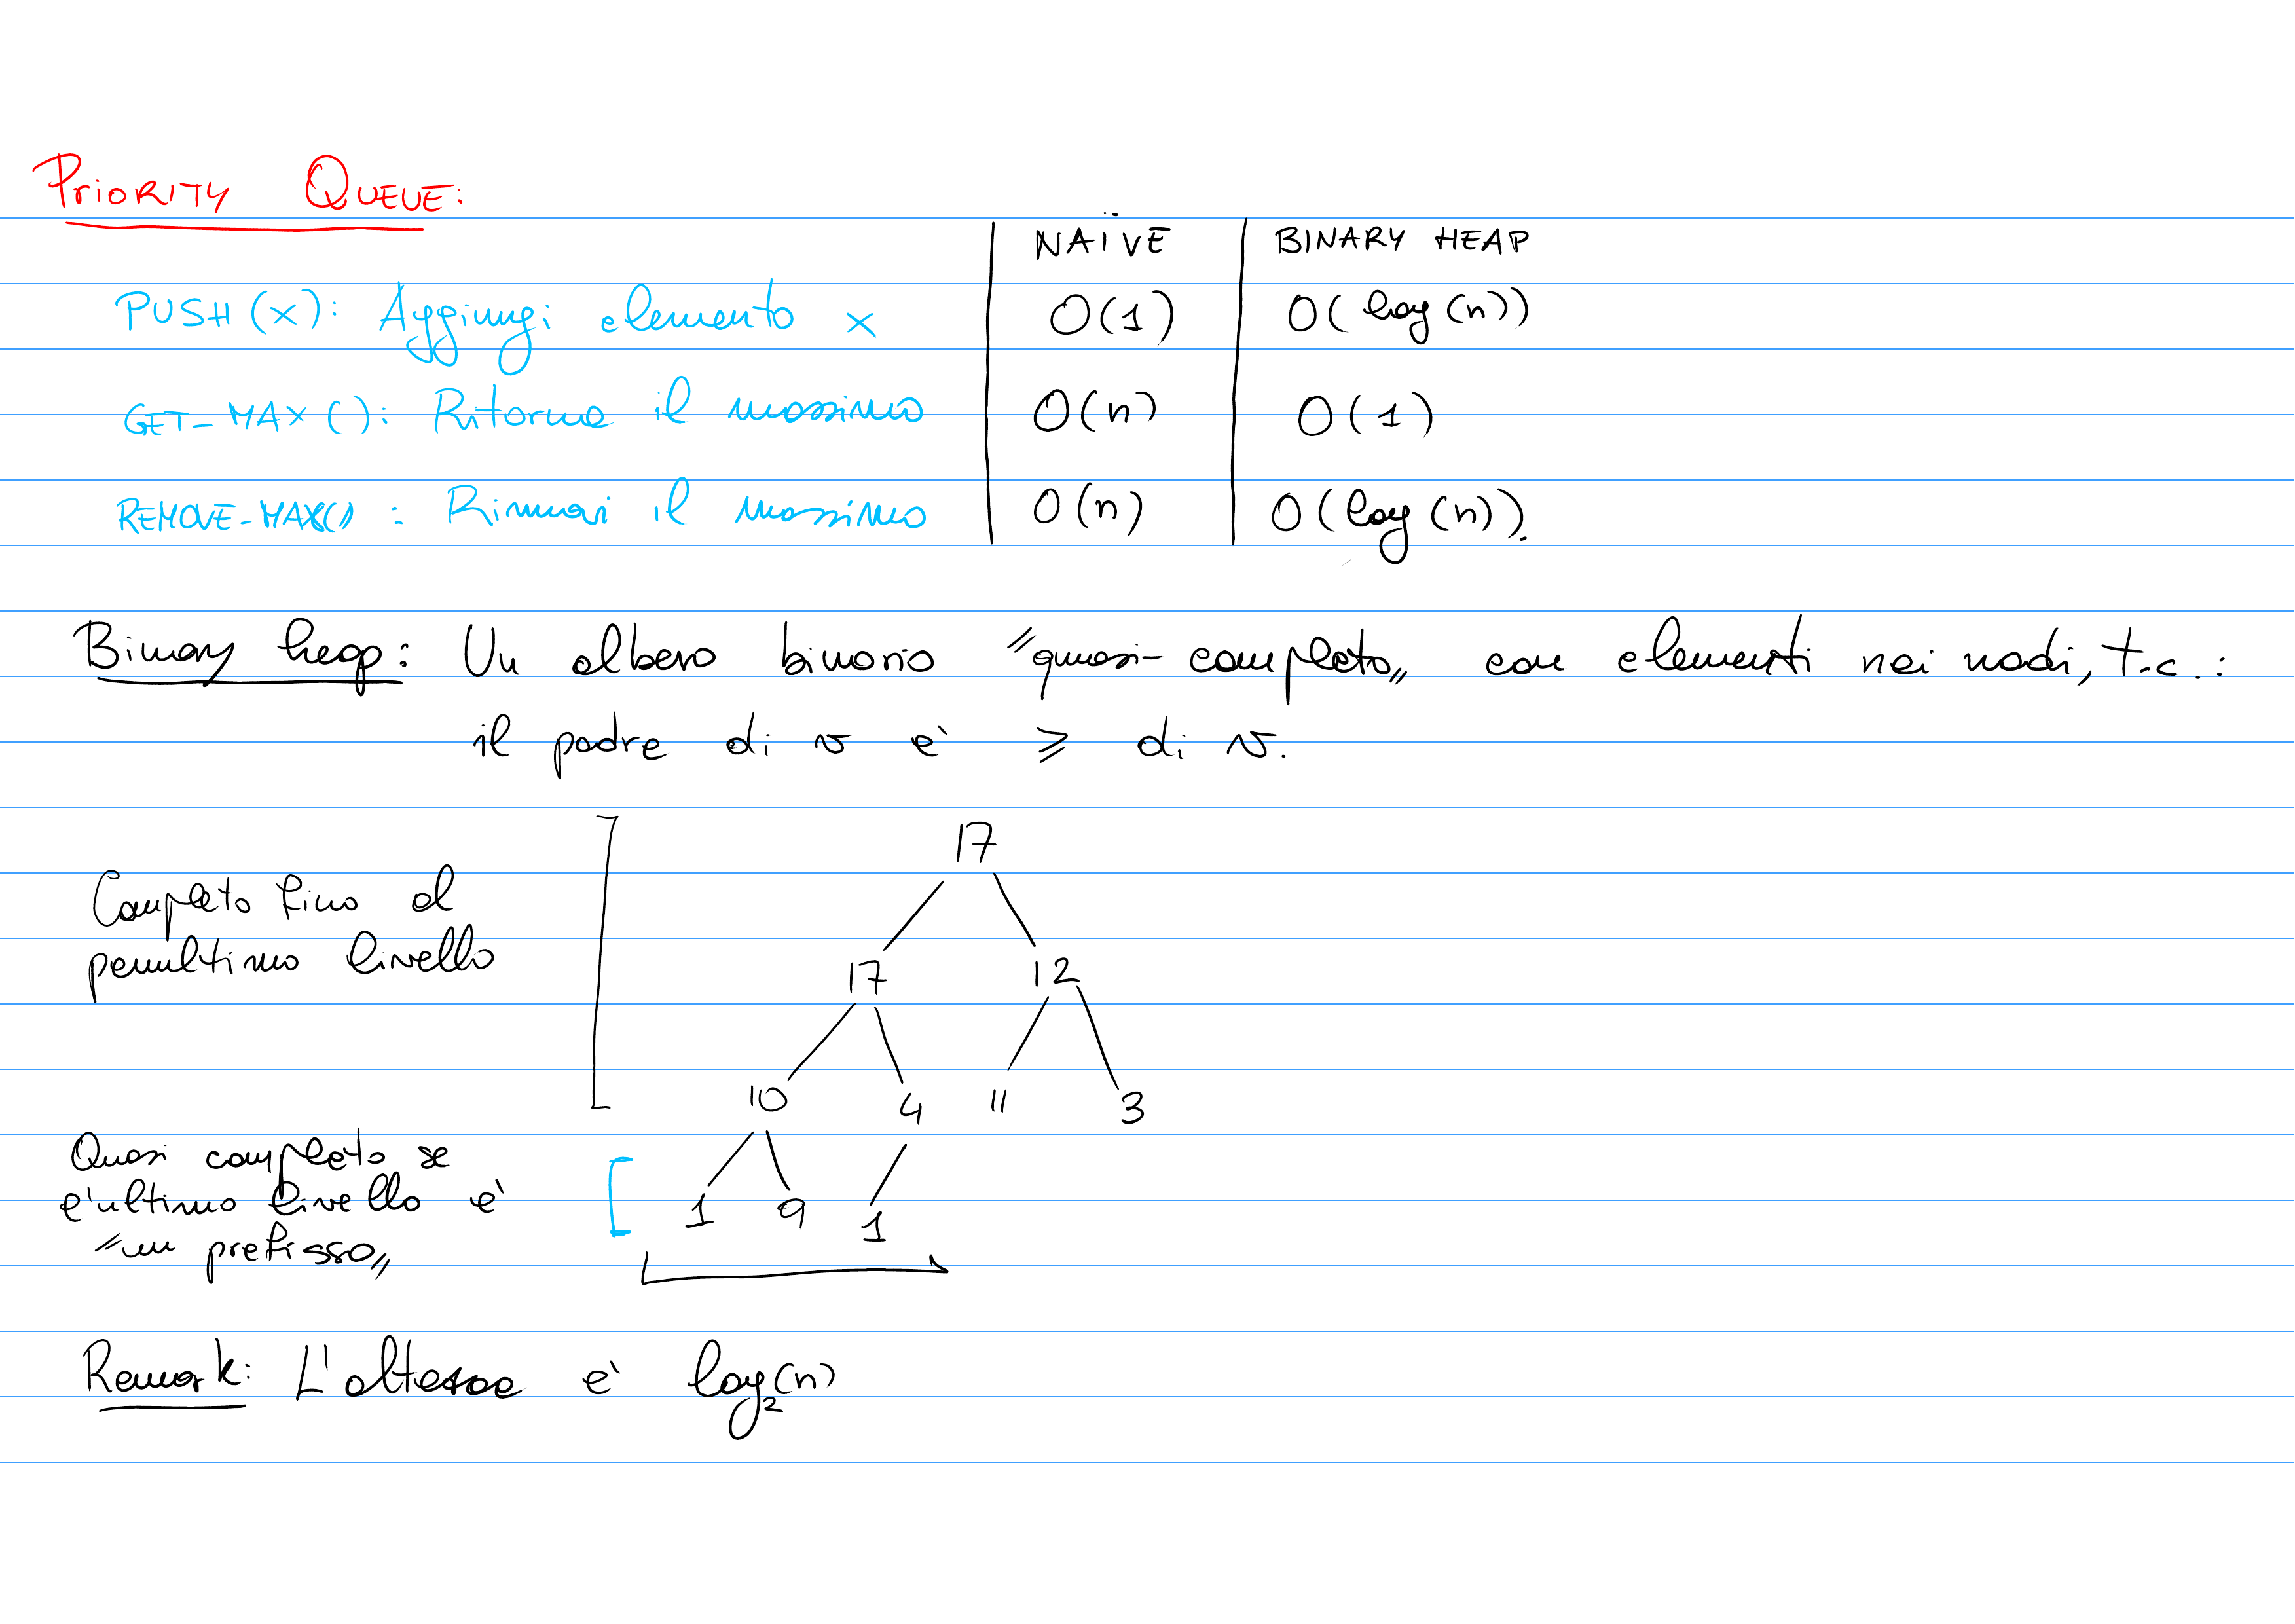 PRIORITY QUEUE:
NAÏVE BINARY HEAP
PUSH(x): Aggiungi elemento x O(1) O(log(n))
GET-MAX(): Ritorna il massimo O(n) O(1)
REMOVE-MAX(): Rimuovi il massimo O(n) O(log(n)).
Binary heap: Un albero binario "quasi-completo" con elementi nei nodi, t.c.:
il padre di v è ≥ di v.
17
Completo fino al
penultimo livello
17 12
10 4 11 3
Quasi completo se
l'ultimo livello è
"un prefisso"
1 9 1
Remark: L'altezza è log₂(n)